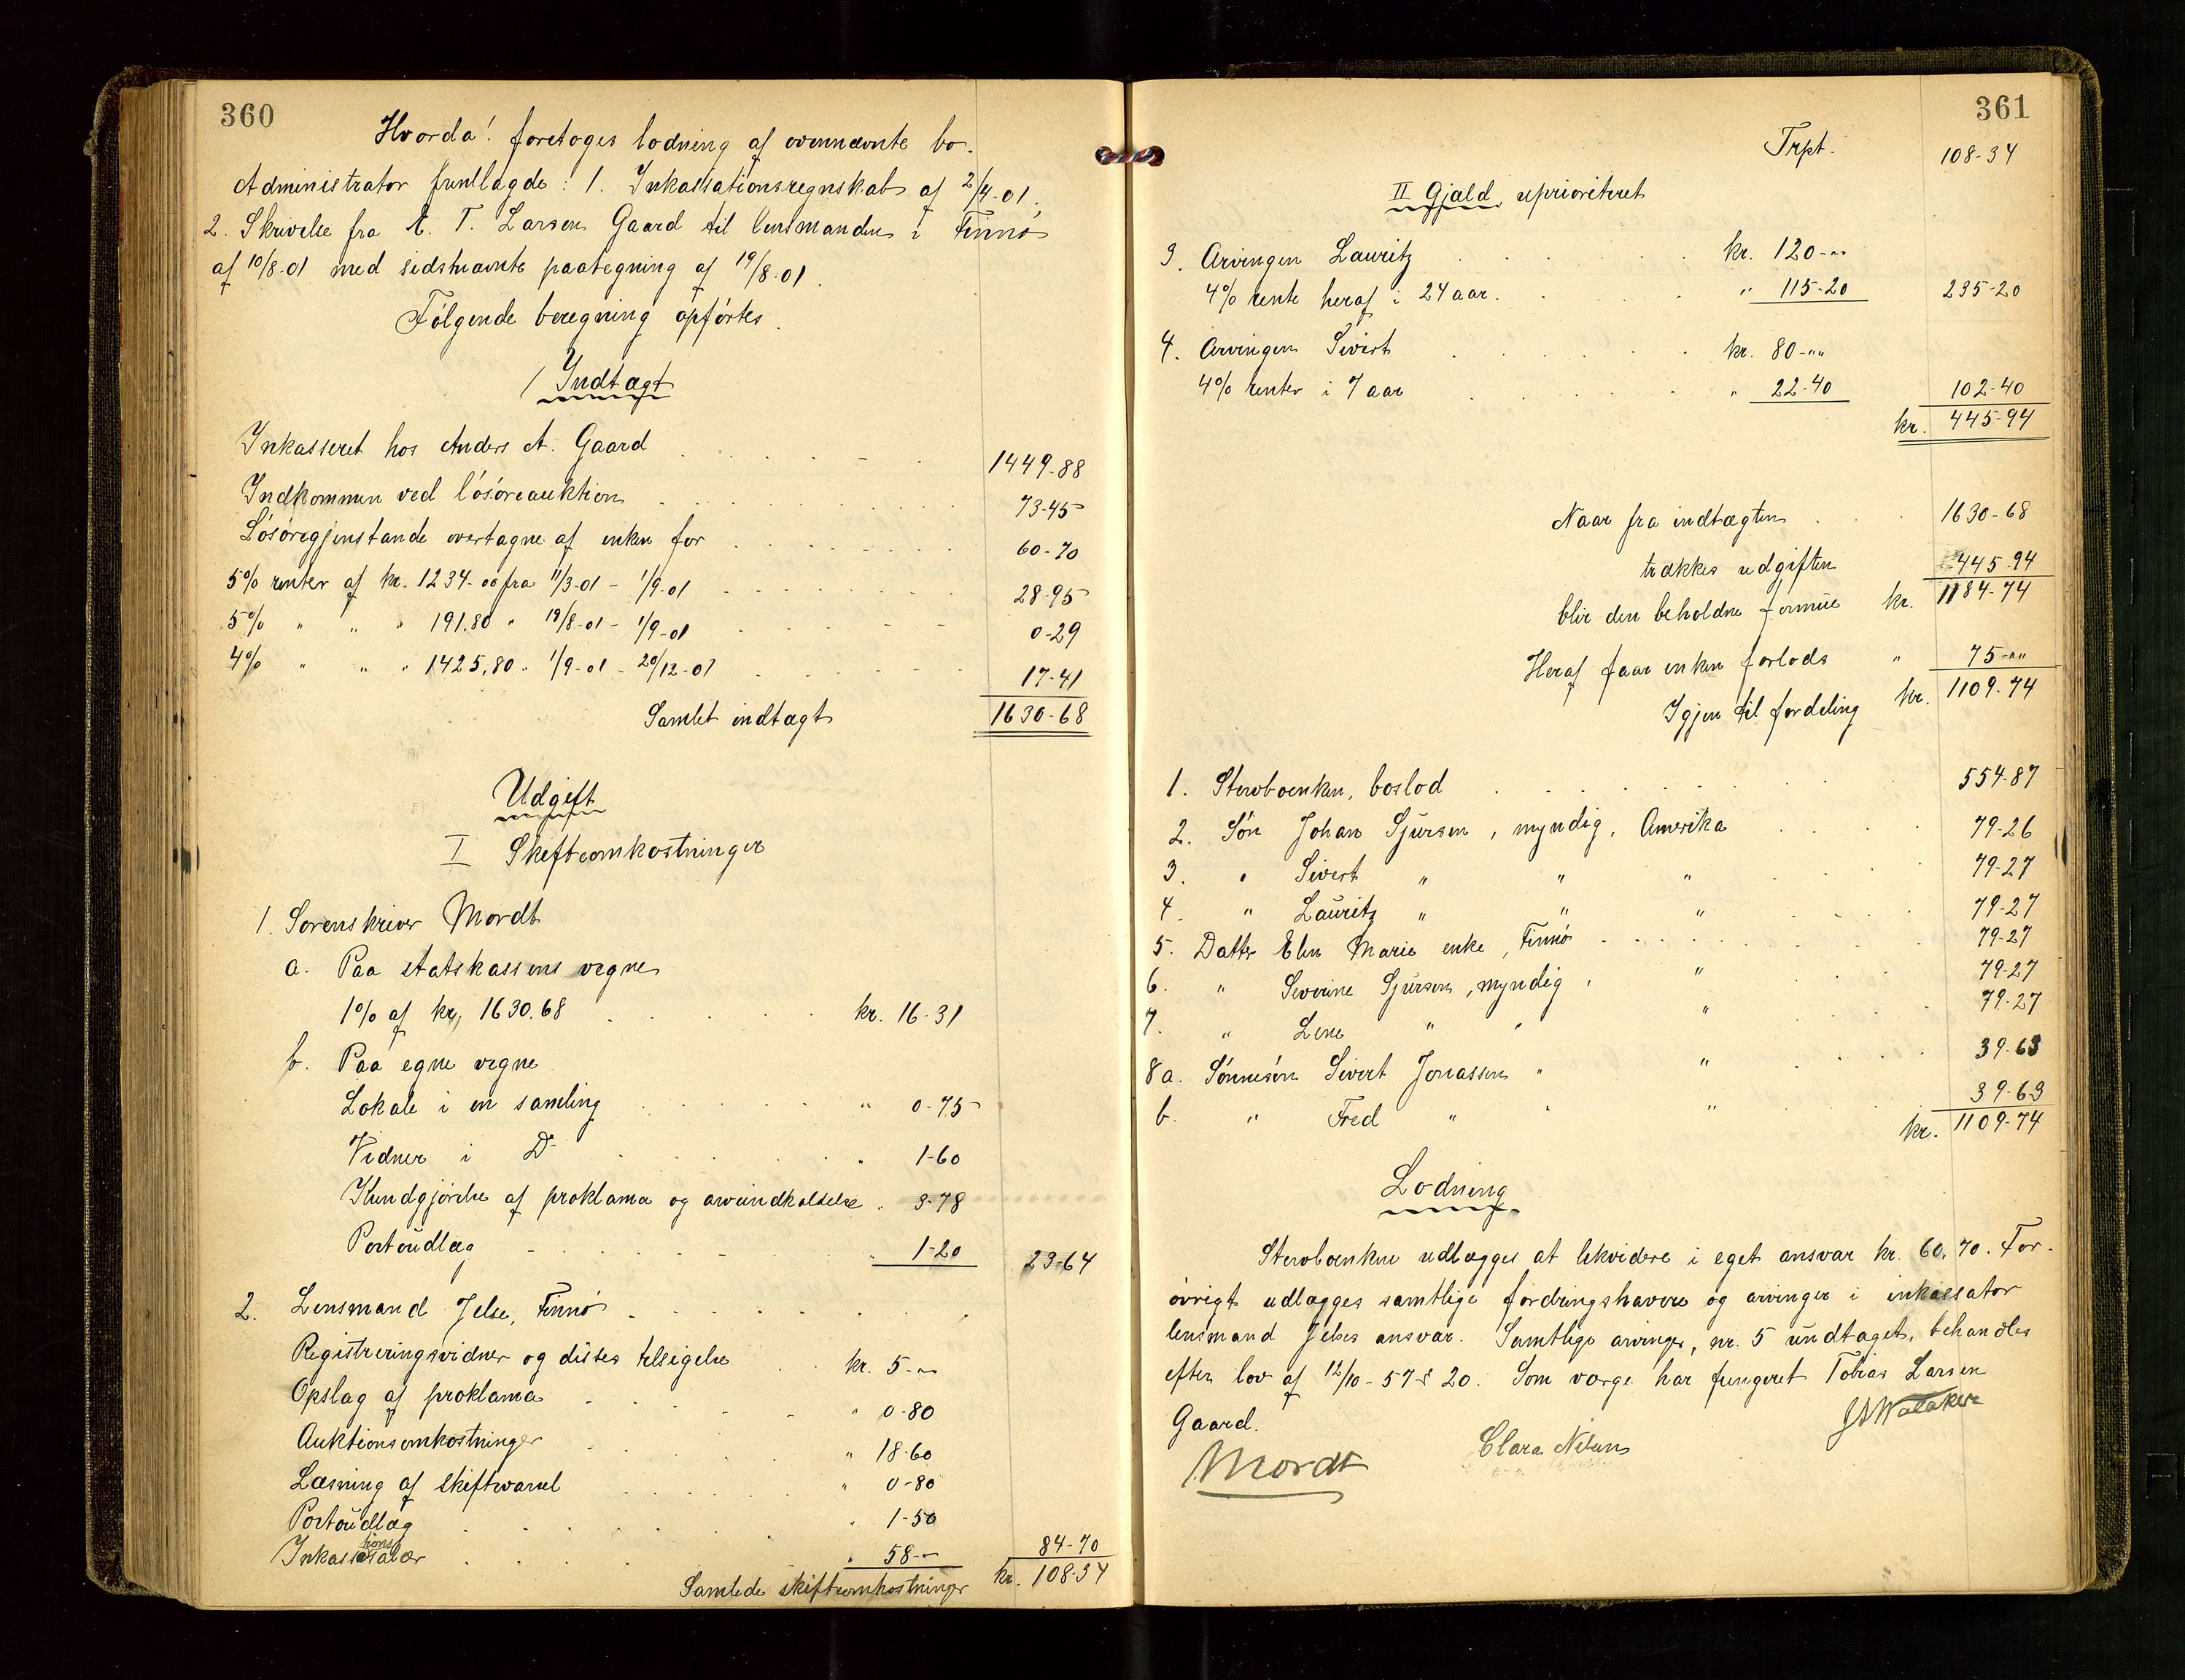 360
Hvorda! foretoges lodning af ovennævnte bo.
Administrator fremlagde: 1. Inkassationsregnskab af 2/4-01,
2. Skrivelse fra A. T. Larsen Gaard til lensmanden i Finnö
af 10/8-01 med sidstnævnte paategning af 19/8-01.
Fölgende beregning opförtes.
/ Indtægt
Inkasseret hos Anders A. Gaard 1449-88
Indkommen ved lösöreauktion 73-45
Lösöregjenstande overtagne af enken for 60-70
5% renter af kr. 1234.00 fra 11/3-01 - 1/9-01 28-95
5% " " " 191.80 " 19/8-01 - 1/9-01 0-29
4% " " " 1425,80 " 1/9-01 - 20/12-01 17-41
Samlet indtægt 1630-68
Udgift
I Skifteomkostninger
1. Sorenskriver Mordt
a. Paa statskassens vegne
1% af kr. 1630.68 kr. 16-31
b. Paa egne vegne
Lokale i en samling " 0-75
Vidner i D " 1-60
Kundgjörelse af proklama og arveindkaldelse " 3-78
Portoudlæg " 1-20 23-64
2. Lensmand Jelse, Finnö
Registreringsvidner og disses tilsigelse kr. 5-"
Opslag af proklama " 0-80
Auktionsomkostninger " 18-60
Læsning af skiftevarsel " 0-80
Portoudlæg " 1-50
Inkassationssalær " 58-" 84-70
Samlede skifteomkostninger kr. 108-34
361
Trpt. 108-34
II Gjæld, uprioriteret
3. Arvingen Lauritz kr. 120-""
4% rente heraf i 24 aar. " 115-20 235-20
4. Arvingen Sivert kr. 80-""
4% renter i 7 aar " 22-40 102-40
kr. 445-94
Naar fra indtægten 1630-68
trækkes udgiften 445-94
blir den beholdne formue kr. 1184-74
Heraf faar enken forlods " 75-""
Igjen til fordeling kr. 1109-74
1. Stervboenken, boslod 554-87
2. Sön Johan Sjursen, myndig, Amerika 79-26
3. " Sivert " " " 79-27
4. " Lauritz " " " 79-27
5. Datter Elen Marie enke, Finnö 79-27
6. " Severine Sjursen, myndig, " 79-27
7. " Lene " " " 79-27
8a. Sönnesön Sivert Jonassen " " 39-63
b. " Fred " " " 39-63
kr. 1109-74
Lodning
Stervboenken udlægges at likvidere i eget ansvar kr. 60,70. For-
övrigt udlægges samtlige fordringshavere og arvinger i inkassator
lensmand Jelses ansvar. Samtlige arvinger, nr. 5 undtaget, behandles
efter lov af 12/10-57 § 20. Som værge har fungeret Tobias Larsen
Gaard.
Mordt Clara Nilsen